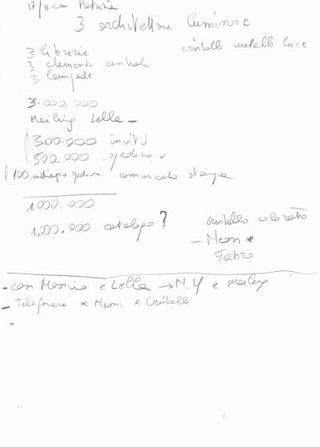 17/11 con
3 architetture luminose
cristallo metallo luce
3 librerie
3 elementi
3 lampade
3.000.000
Mailing Lella -
300.000 inviti
500.000
100 comunicato stampa
1.000.000
1.000.000 catalogo ?
cristallo colorato
- Neon *
- con e Lella → N.Y e mailing
- Telefonare x Neon e Cristallo
-